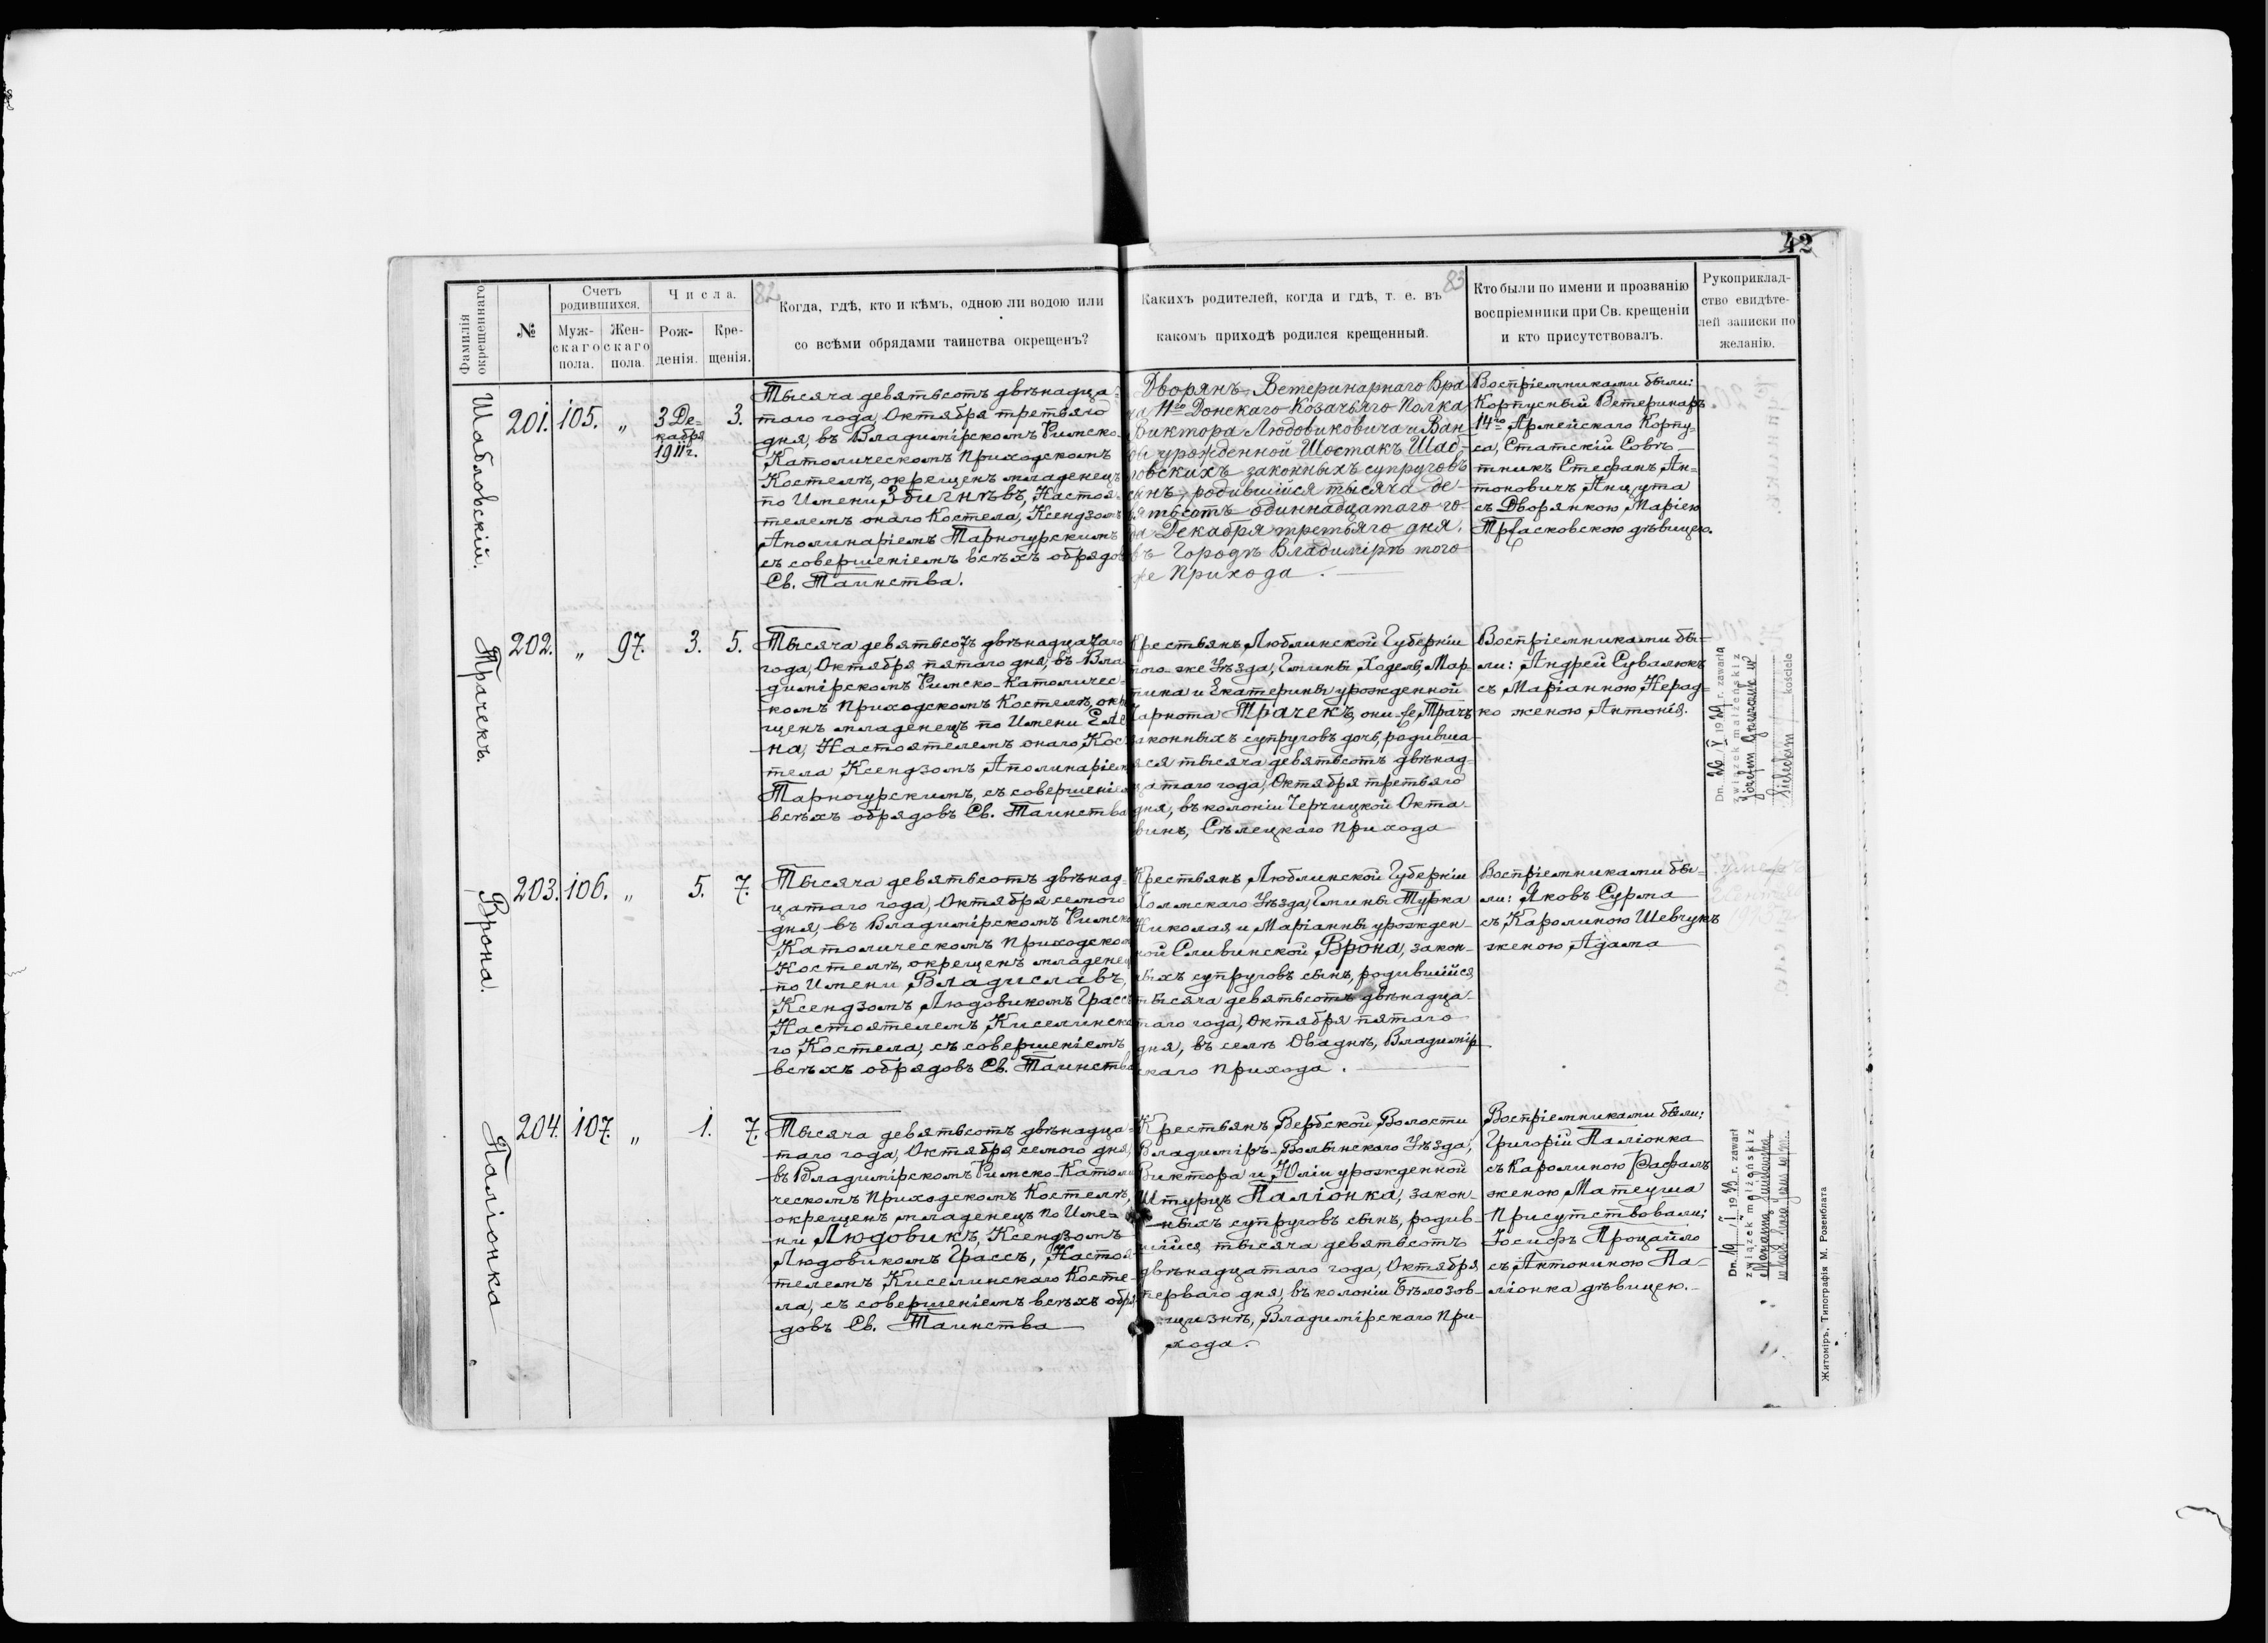 42
82
83
Фамилія окрещеннаго
№
Счетъ родившихся.
Муж-
скаго
пола.
Жен-
скаго
пола.
Числа.
Рож-
денія.
Кре-
щенія.
Когда, гдѣ, кто и кѣмъ, одною ли водою или
со всѣми обрядами таинства окрещенъ?
Какихъ родителей, когда и гдѣ, т. е. въ
какомъ приходѣ родился крещенный.
Кто были по имени и прозванію
воспріемники при Св. крещеніи
и кто присутствовалъ.
Рукоприклад-
ство свидѣте-
лей записки по
желанію.
Шабловскій.
201.
105.
„
3 Де=
кабря
1911 г.
3.
Тысяча девятьсотъ двѣнадца-
таго года, Октября третьяго
дня, въ Владимірскомъ Римско-
Католическомъ Приходскомъ
Костелѣ, окрещенъ младенецъ
по Имени Збигнѣвъ, Настоя-
телемъ онаго Костела, Ксендзомъ
Аполинаріемъ Тарногурскимъ
съ совершеніемъ всѣхъ обрядов
Св. Таинства.
Дворянъ Ветеринарнаго Вра
ча 11го Донскаго Козачьяго Полка
Виктора Людовиковича и Ван
ды урожденной Шостакъ Шаб-
ловскихъ законныхъ супруговъ
сынъ, родившійся тысяча де-
вятьсотъ одиннадцатаго го-
да Декабря третьяго дня.
въ Городѣ Владимірѣ того
же Прихода.
Воспріемниками были:
Корпусный Ветеринаръ
14го Армейскаго Корпу=
са, Статскій Совѣ-
тникъ Стефанъ Ан=
тоновичъ Анцута
съ Дворянкою Маріею
Трасковскою дѣвицею.
Трачекъ.
202.
„
97.
3.
5.
Тысяча девятьсотъ двѣнадцатаго
года, Октября пятаго дня, въ Вла
димірскомъ Римско-Католичес-
комъ Приходскомъ Костелѣ, окре
щенъ младенецъ по Имени Еле
на, Настоятелемъ онаго Кос
тела Ксендзомъ Аполинаріем
Тарногурскимъ, съ совершеніем
всѣхъ обрядовъ Св. Таинства
Крестьянъ Люблинской Губерніи
того-же Уѣзда, Гмины Ходель, Мар
тина и Екатерины урожденной
Чарнота Трачекъ, они-же Трачъ
законныхъ супруговъ дочь, родивша-
яся тысяча девятьсотъ двѣнад-
цатаго года, Октября третьяго
дня, въ колоніи Черчицкой Окта-
винѣ, Сѣлецкаго Прихода
Воспріемниками бы=
ли: Андрей Сувалюкъ
съ Маріанною Нерад=
ко женою Антонія.
Dn. 26/V 1929 r. zawarła
związek małżeński z
kościele
Врона.
203.
106.
„
5.
7.
Тысяча девятьсотъ двѣнад-
цатаго года, Октября семого
дня, въ Владимірскомъ Римско
Католическомъ Приходском
Костелѣ, окрещенъ младенец
по Имени Владиславъ,
Ксендзомъ Людовикомъ Грассъ
Настоятелемъ Киселинска
го Костела, съ совершеніемъ
всѣхъ обрядовъ Св. Таинства
Крестьянъ Люблинской Губерніи
Холмскаго Уѣзда, Гмины Турка
Николая и Маріанны урожден-
ной Сливинской Врона, закон-
ныхъ супруговъ сынъ, родившійся
тысяча девятьсотъ двѣнадца-
таго года, Октября пятаго
дня, въ селѣ Оваднѣ, Владимір
скаго Прихода.
Воспріемниками бы-
ли: Яковъ Сурма
съ Каролиною Шевчукъ
женою Адама
Паліонка
204.
107.
„
1.
7.
Тысяча девятьсотъ двѣнадца-
таго года, Октября семого дня,
въ Владимірскомъ Римско-Католи
ческомъ Приходскомъ Костелѣ,
окрещенъ младенецъ по Име=
ни Людовикъ, Ксендзомъ
Людовикомъ Грассъ, Настоя
телемъ Киселинскаго Косте-
ла, съ совершеніемъ всѣхъ обря
довъ Св. Таинства
Крестьянъ Вербской Волости
Владиміръ-Волынскаго Уѣзда,
Виктора и Юліи урожденной
Штурцъ Паліонка, закон-
ныхъ супруговъ сынъ, родив-
шійся тысяча девятьсотъ
двѣнадцатаго года, Октября
перваго дня, въ колоніи Бѣлозов-
щизнѣ, Владимірскаго При-
хода.
Воспріемниками были:
Григорій Паліонка
съ Каролиною Рафалъ
женою Матеуша
Присутствовали:
Іосифъ Процайло
съ Антониною Па-
ліонка дѣвицею.
zawarł
związek małżeński z
Житоміръ, Типографія М. Розенблата